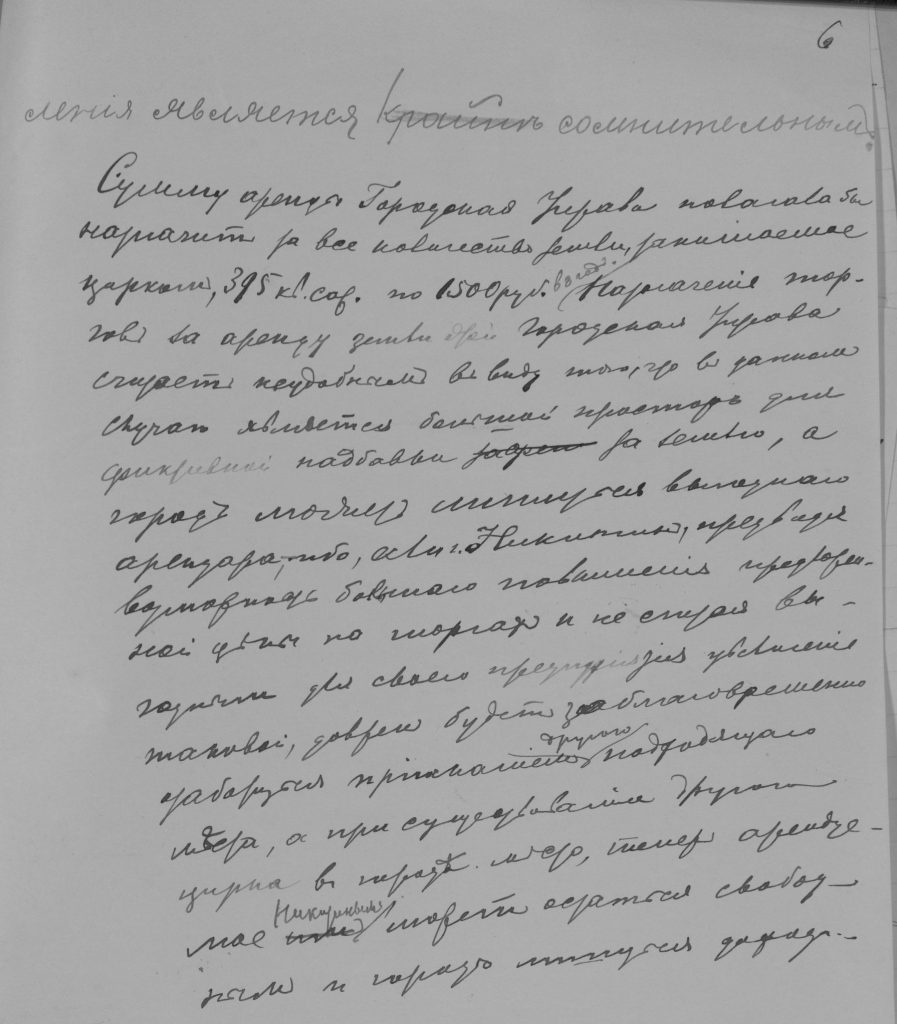 6
ленія является крайнѣ сомнительнымъ.
Сумму аренды Городская Управа полагала бы
назначить за все количество земли, занимаемое
циркомъ, 395 кв. саж. по 1500 руб. въ годъ. Назначеніе тор-
говъ на аренду земли Городская Управа
считаетъ неудобнымъ въ виду того, что въ данномъ
случаѣ является большой просторъ для
фиктивной надбавки за землю, а
городъ можетъ лишиться выгоднаго
арендатора, ибо, если г. Никитинъ, предвидя
возможность большого повышенія предложен-
ной цѣны на торгахъ и не считая вы-
годнымъ для своего предпріятія увеличеніе
таковой, долженъ будетъ заблаговременно
озаботиться пріисканіемъ другого подходящаго
мѣста, а при существованіи другого
цирка въ городѣ мѣсто, теперь арендуе-
мое Никитинымъ можетъ остаться свобод-
нымъ и городъ лишится дохода.